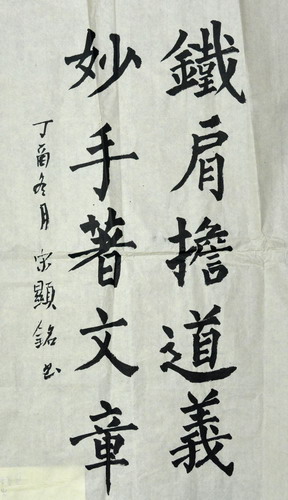 鐵肩擔道義
妙手著文章
丁酉冬月宋顯銘書